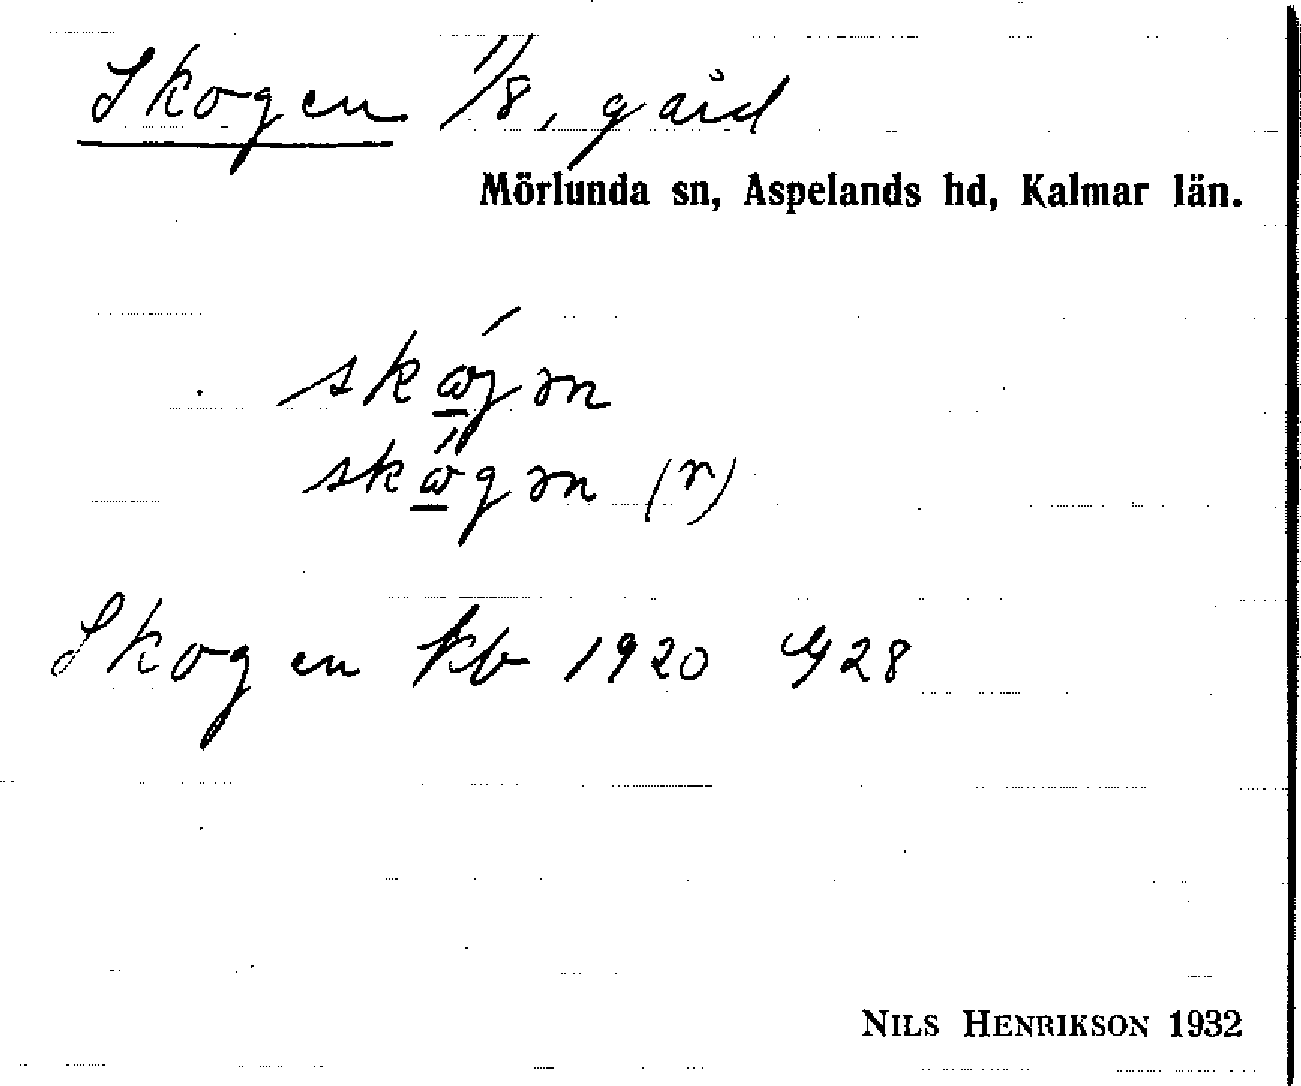 Skogen 1/8, gård
Mörlunda sn, Aspelands hd, Kalmar län.
skɷ́gən
skɷ̋gən (r)
Skogen kb 1920 4/928
NILS HENRIKSON 1932